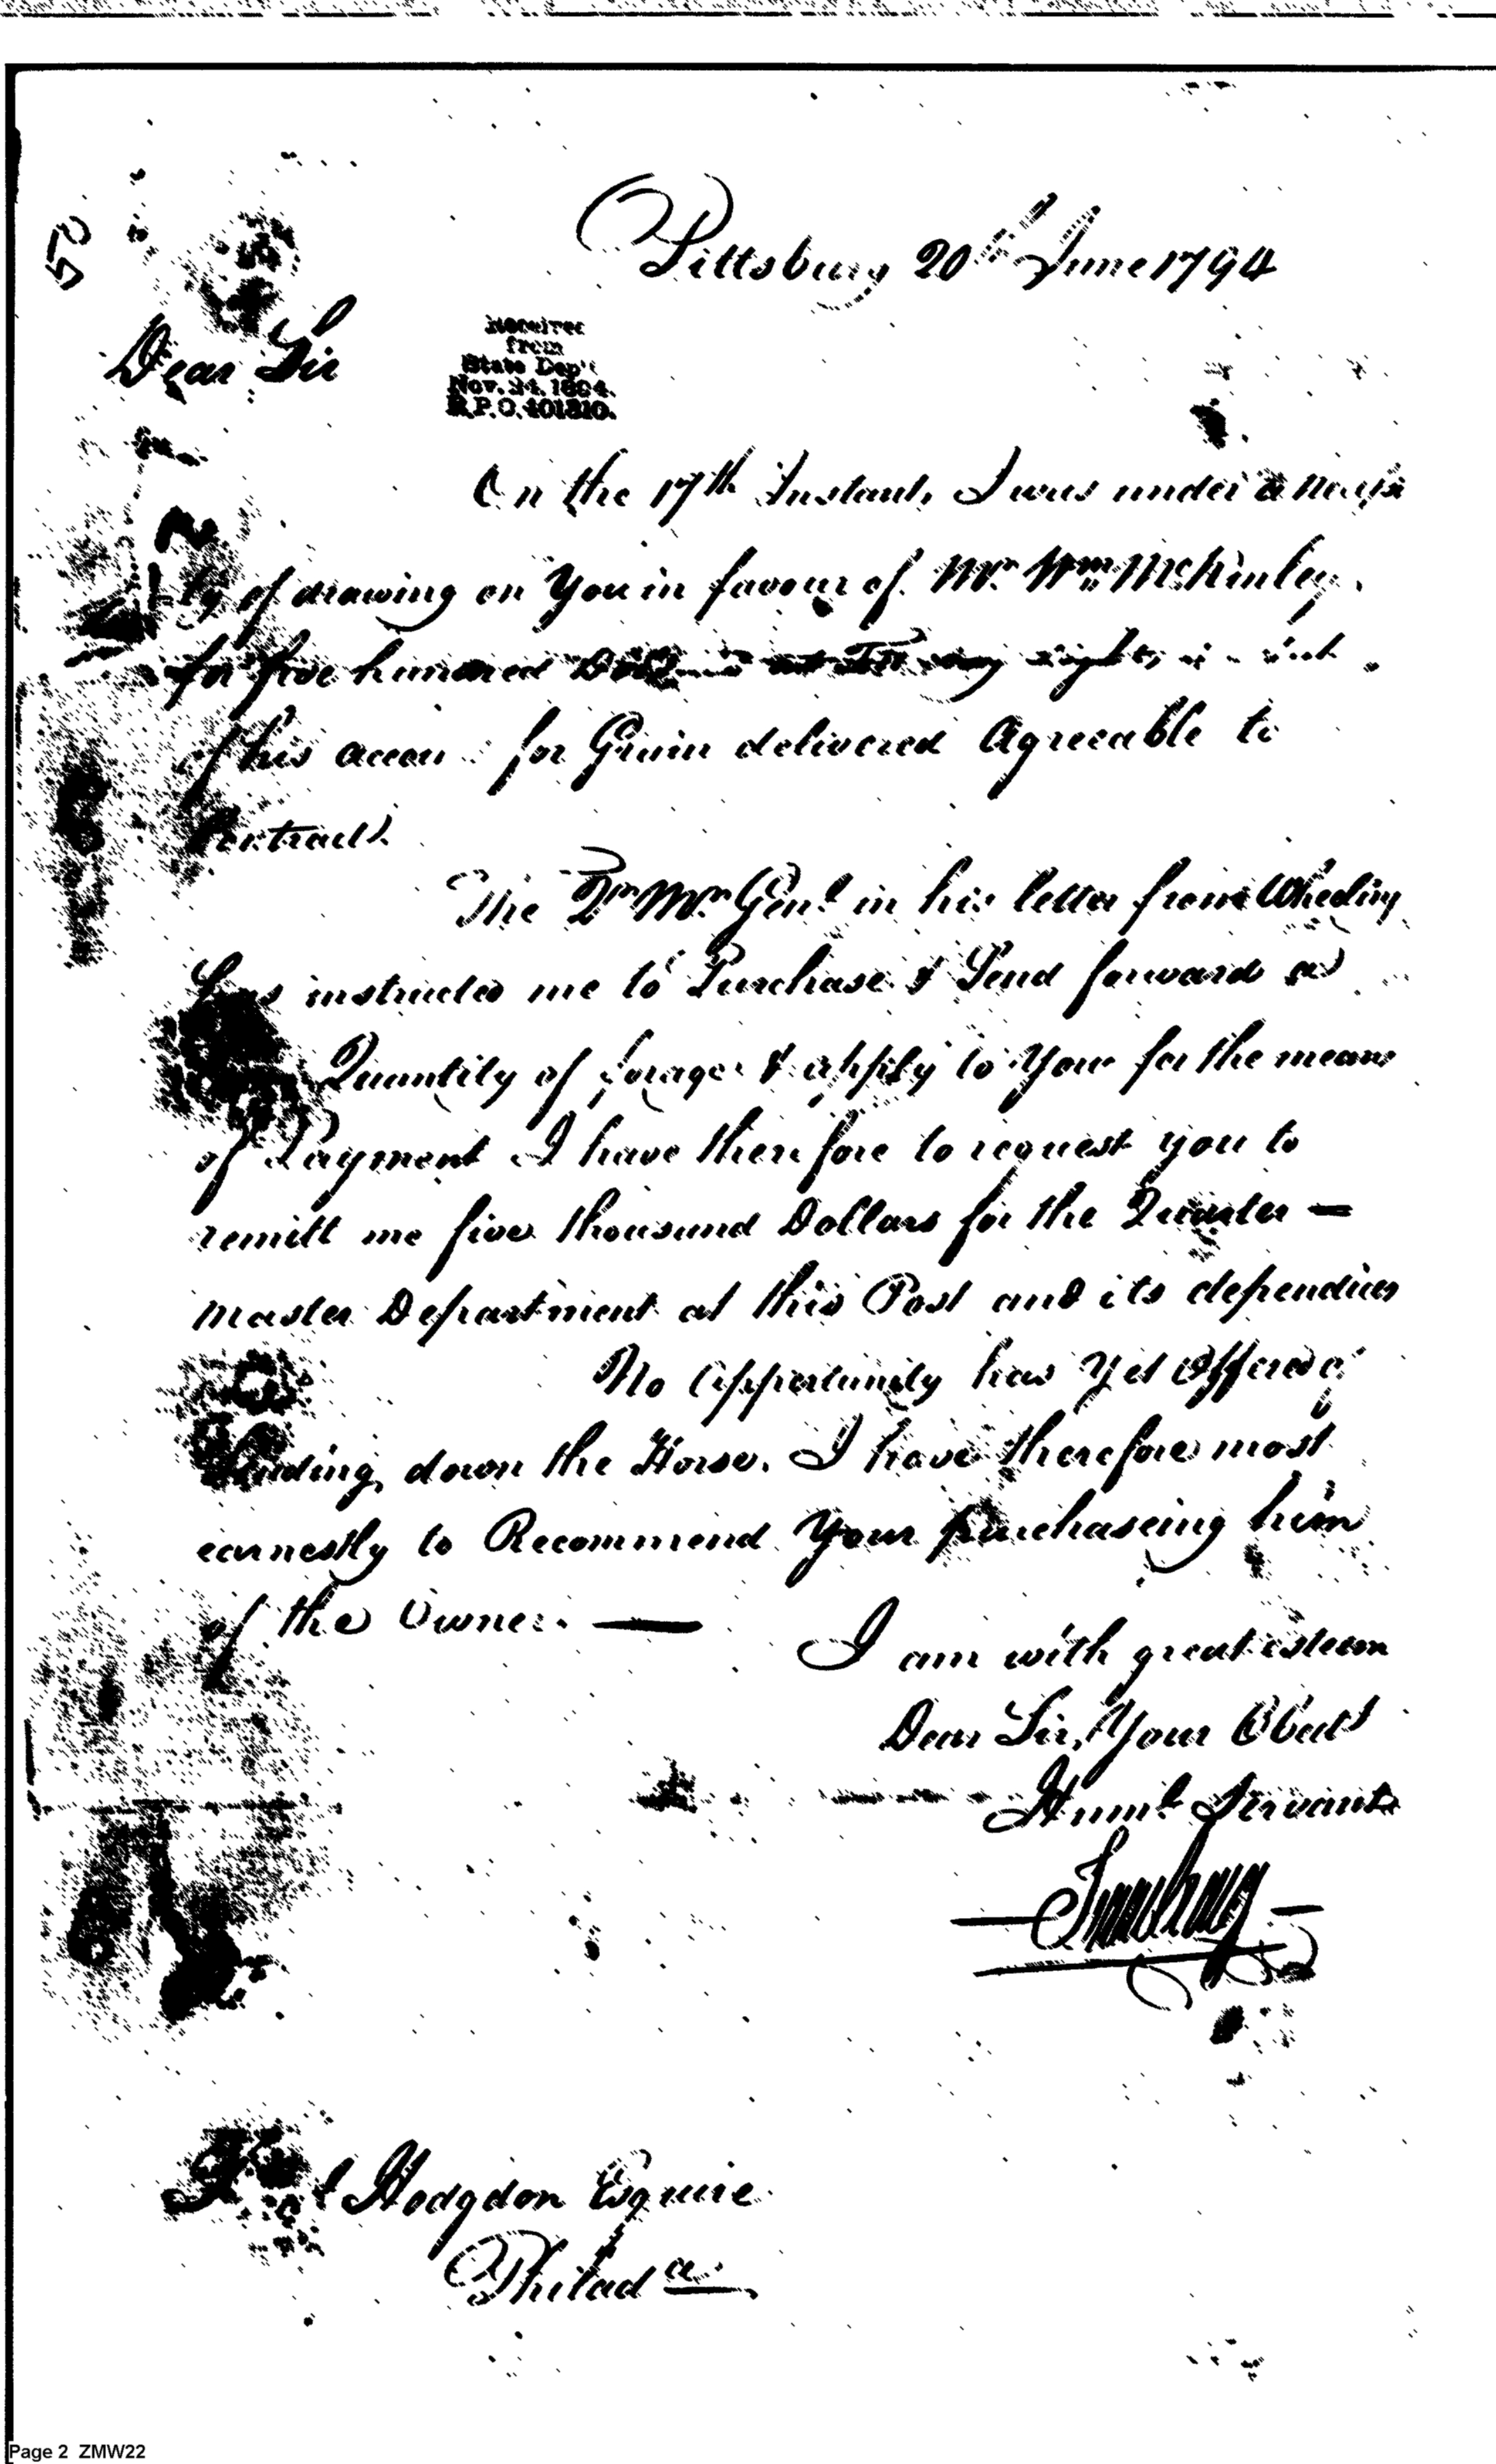 52
Pittsburg 20th June 1794
Dear Sir
Received
from
State Dep't
Nov. 24, 1894.
R.P.O. 401810.
On the 17th Instant, I was under a necessi
ty of drawing on You in favour of Mr. Wm. McKinley
for five hundred eighty
of his accou for Grain delivered Agreeable to
Contract
The Qr Mr Genl in his letter from Wheeling
has instructed me to Purchase & Send forward a
Quantity of forage & apply to You for the means
of Payment I have therefore to request you to
remitt me five thousand Dollars for the Quarter —
master Department at this Post and its dependices
No Opportunity has Yet Offered of
Sending down the Horse. I have therefore most
earnestly to Recommend Your purchaseing him
of the Owner. —
I am with great esteem
Dear Sir, Your Obedt
Huml Servant
Hodgdon Esquire
Philada
Page 2 ZMW22